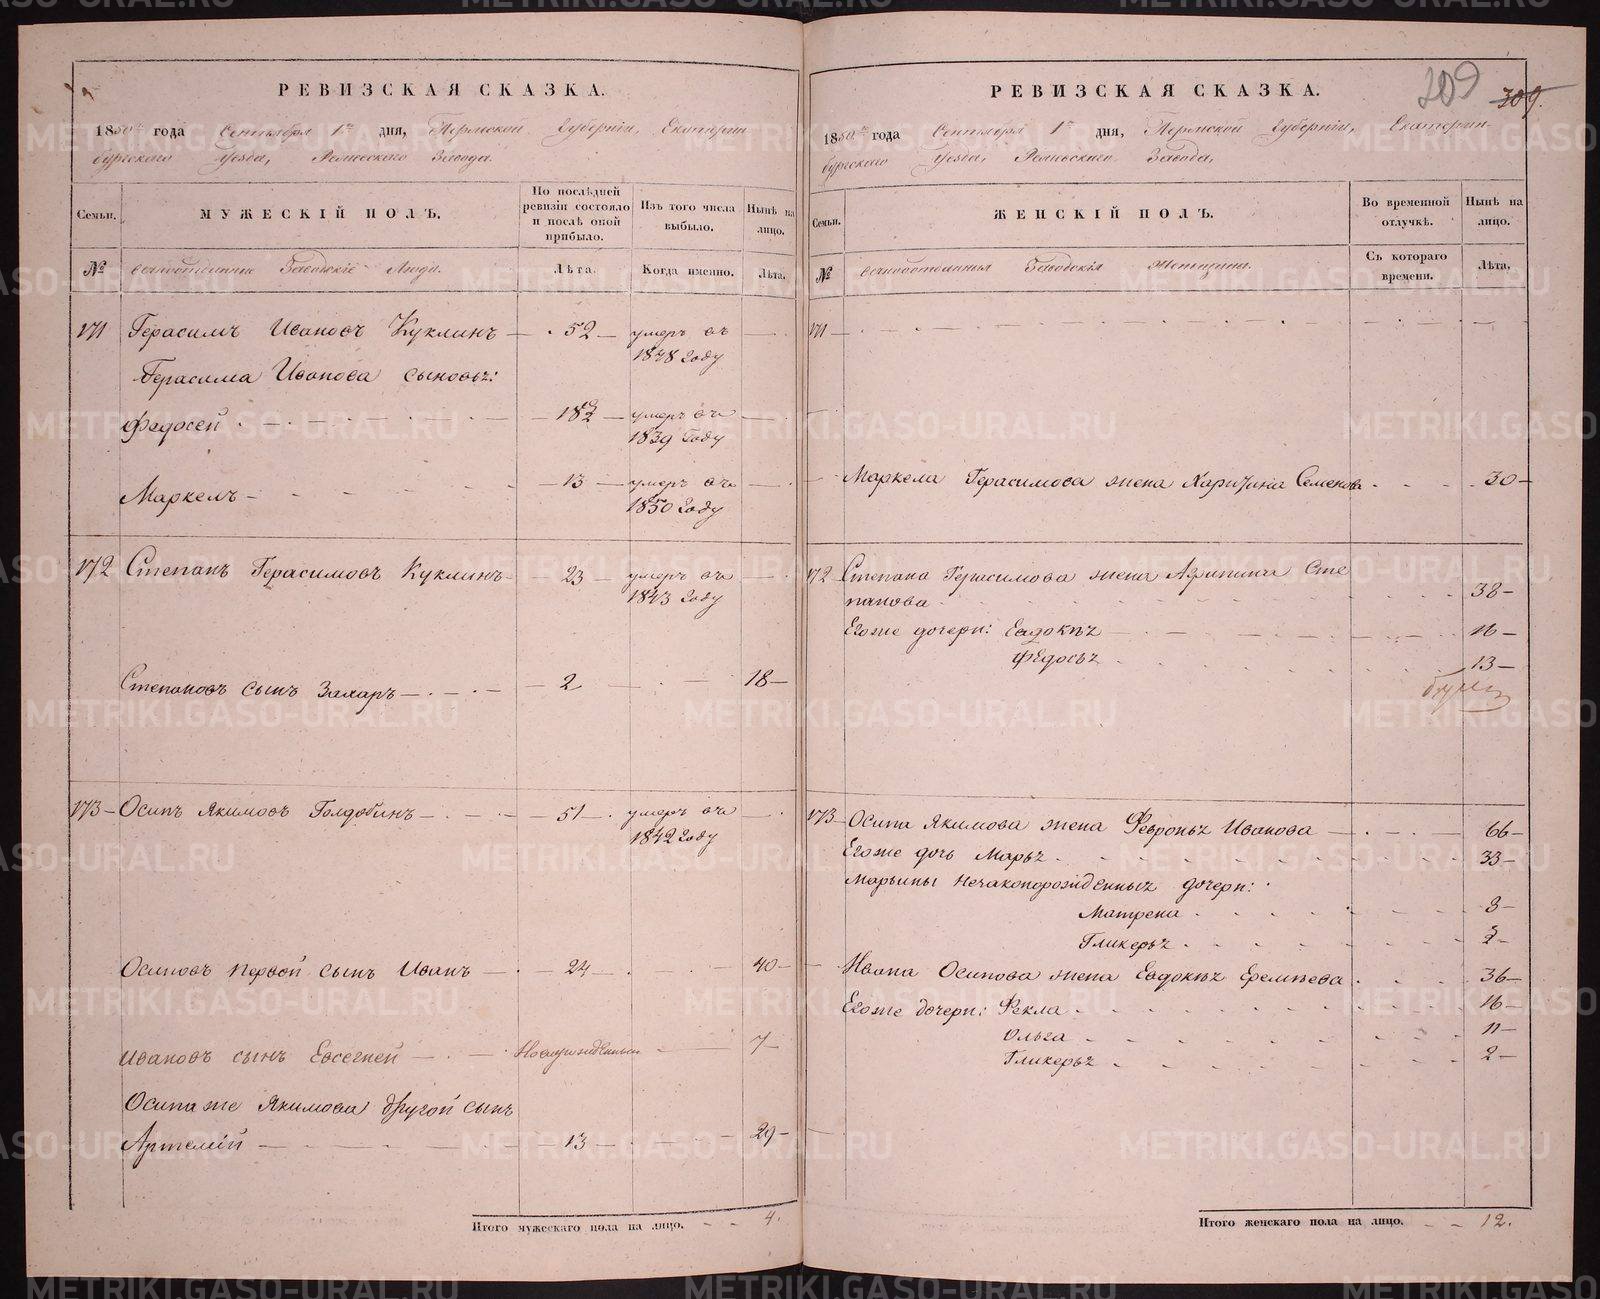 РЕВИЗСКАЯ СКАЗКА.
1850 года Сентября 1го дня, Пермской Губернiи, Екатерин-
бургского Уезда, Завода.
Семьи.
МУЖЕСКIЙ ПОЛЪ.
По послѣдней ревизiи состояло и послѣ оной прибыло.
Изъ того числа выбыло.
Нынѣ на лицо.
№
Заводскiе Люди.
Лѣта.
Когда именно.
Лѣта.
171 Герасимъ Ивановъ Куклинъ 52 умеръ въ
1848 Году
Герасима Иванова сыновьѧ:
Федосей 18 умеръ въ
1839 Году
Маркелъ 13 умеръ въ
1850 Году
172 Степанъ Герасимовъ Куклинъ 23 умеръ въ
1843 Году
Степановъ сынъ Захаръ 2 18
173 Осипъ Якимовъ Голдобинъ 51 умеръ въ
1842 Году
Осиповъ первой сынъ Иванъ 24 40
Ивановъ сынъ Евсегней Новорожденный 7
Осипа же Якимова другой сынъ
Артемiй 13 29
Итого мужескаго пола на лицо. 4.
309
309.
РЕВИЗСКАЯ СКАЗКА.
1850 года Сентября 1го дня, Пермской Губернiи, Екатерин-
бургского Уезда, Завода,
Семьи.
ЖЕНСКIЙ ПОЛЪ.
Во временной отлучкѣ.
Нынѣ на лицо.
№
Заводскiя Женщины.
Съ котораго времени.
Лѣта.
171
Маркела Герасимова жена Харитина Семенова 30
172 Степана Герасимова жена Агрипина Сте
панова 38
Егоже дочери: Евдокѣѧ 16
Федосьѧ 13
173 Осипа Якимова жена Февроньѧ Иванова 66
Егоже дочь Марьѧ 33
Марьины незаконорожденныѧ дочери:
Матрена 8
Гликерьѧ
Ивана Осипова жена Евдокѣѧ Еремѣева 36
Егоже дочери: Фекла 16
Ольга 11
Гликерьѧ 2
Итого женскаго пола на лицо. 12.
METRIKI.GASO-URAL.RU